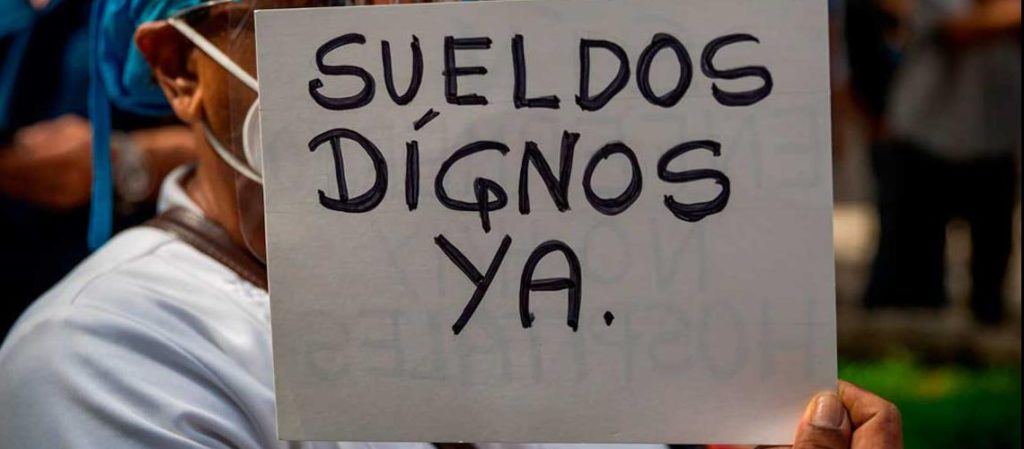 SUELDOS
DÍGNOS
YA.